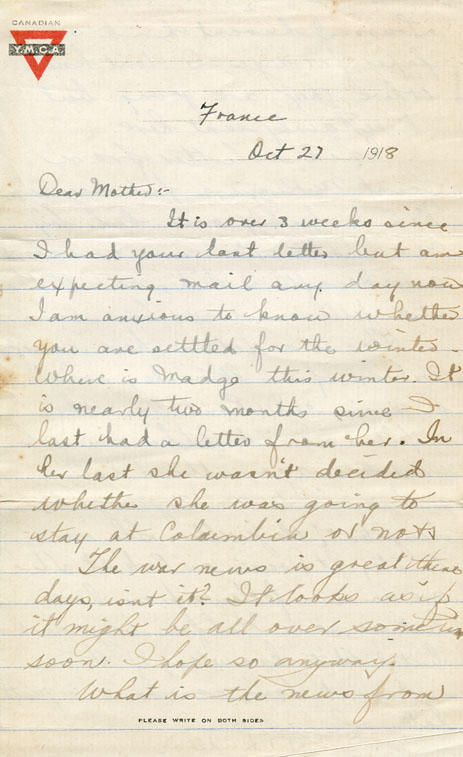 CANADIAN
Y.M.C.A.
France
Oct 27 1918
Dear Mother:-
It is over 3 weeks since
I had your last letter but am
expecting mail any day now
I am anxious to know whether
you are setttled for the winter.
Where is Madge this winter. It
is nearly two months since I
last had a letter from her. In
her last she wasn't decided
whethe she was going to
stay at Columbia or not.
The war news is great these
days, isnt it? It looks as if
it might be all over some time
soon. I hope so anyway.
What is the news from
PLEASE WRITE ON BOTH SIDES